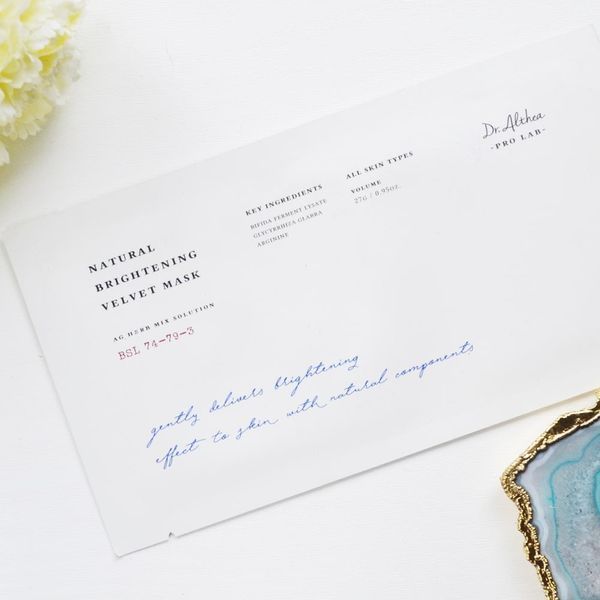 Dr. Althea
-PRO LAB-
ALL SKIN TYPES
VOLUME
27G / 0.95OZ.
KEY INGREDIENTS
BIFIDA FERMENT LYSATE
GLYCYRRHIZA GLABRA
ARGININE
NATURAL
BRIGHTENING
VELVET MASK
AG HERB MIX SOLUTION
BSL 74-79-3
gently delivers brightening
effect to skin with natural components